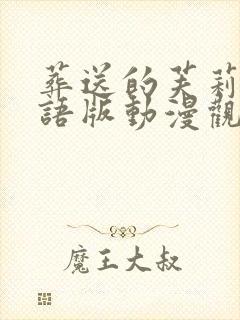 葬送的芙莉
語版動漫觀
魔王大叔